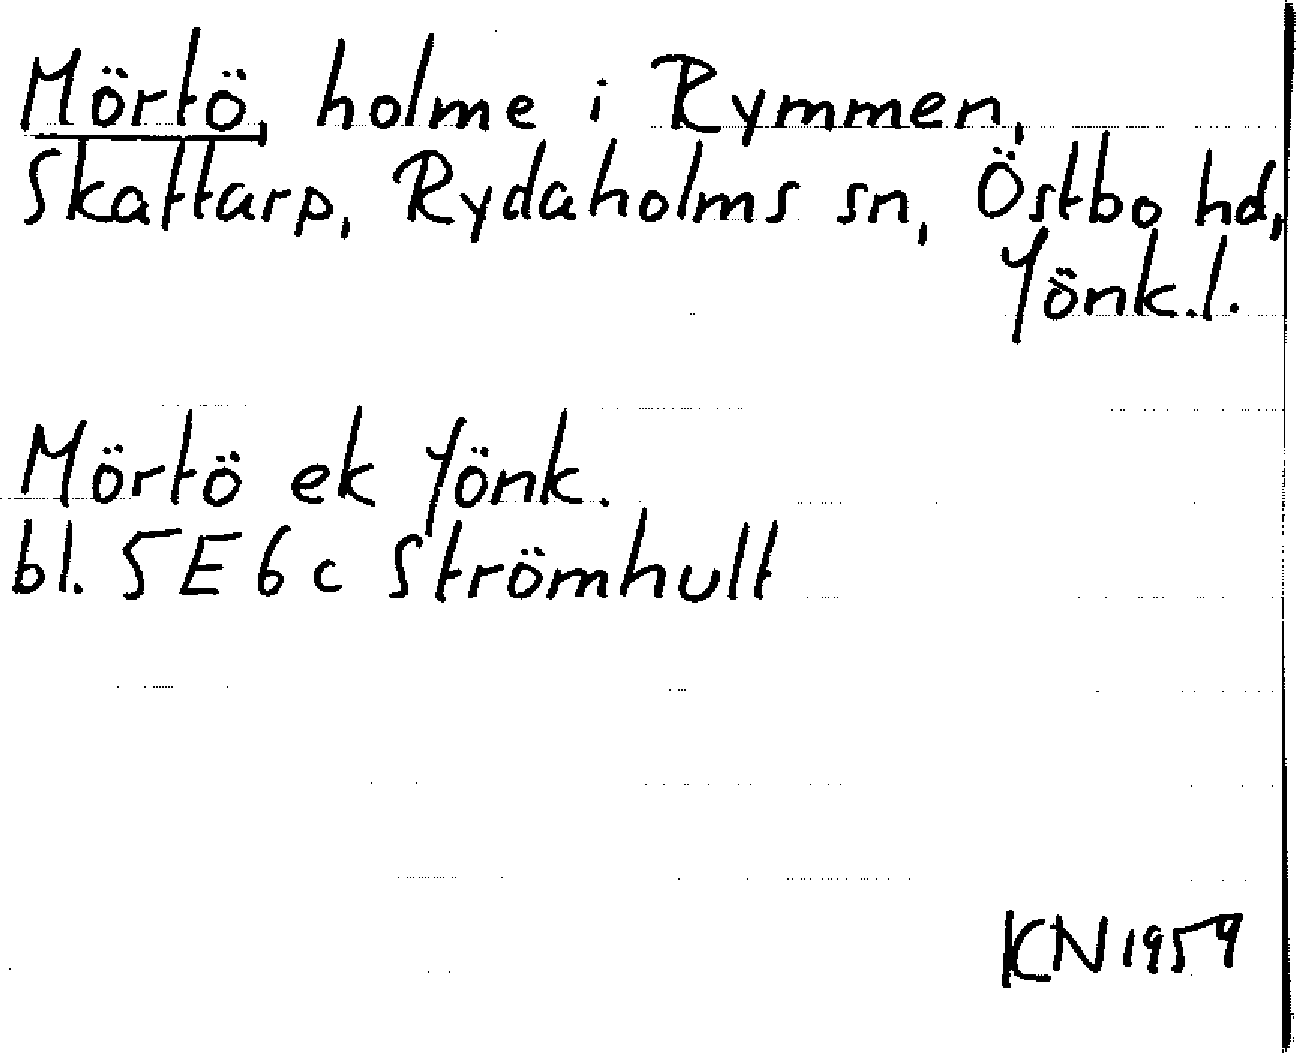 Mörtö, holme i Rymmen,
Skattarp, Rydaholms sn, Östbo hd,
Jönk.l.
Mörtö ek Jönk.
bl. 5E6c Strömhult
KN1959